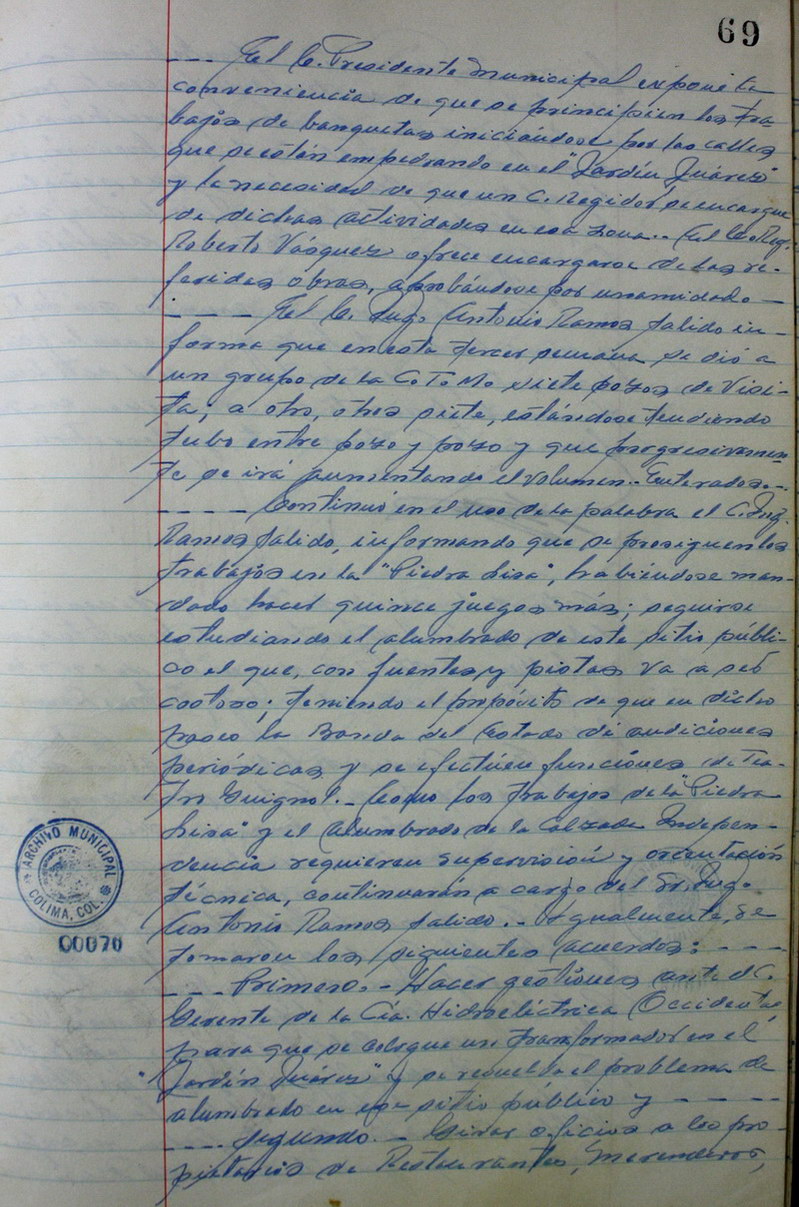 69
--- El C. Presidente Municipal expone la
conveniencia de que se principien los tra-
bajos de banquetas iniciándose por las calles
que se están empedrando en el "Jardín Juárez"
y la necesidad de que un C. Regidor se encargue
de dichas actividades en esa zona.- El C. Reg.
Roberto Vásquez ofrece encargarse de las re-
feridas obras, aprobándose por unanimidad.-
---- El C. Ing. Antonio Ramos Salido in-
forma que en esta tercer semana se dió a
un grupo de la C.T.M. siete pozos de Visi-
ta; a otro, otros siete, estándose tendiendo
tubo entre pozo y pozo y que progresivamen-
te se irá aumentando el volumen.- Enterados.--
---- Continuó en el uso de la palabra el C. Ing.
Ramos Salido, informando que se prosiguen los
trabajos en la "Piedra Lisa", habiéndose man-
dado hacer quince juegos más; seguirse
estudiando el alumbrado de este sitio públi-
co el que, con fuentes y pistas va a ser
costoso; teniendo el propósito de que en dicho
paseo la Banda del Estado dé audiciones
periódicas y se efectúen funciones de Tea-
tro Guignol.- Como los trabajos de la "Piedra
Lisa" y el alumbrado de la Calzada Indepen-
dencia requieren supervisión y orientación
técnica, continuarán a cargo del Sr. Ing.
Antonio Ramos Salido.- Igualmente, se
tomaron los siguientes acuerdos: ---
--- Primero.- Hacer gestiones ante el C.
Gerente de la Cía. Hidroeléctrica Occidental
para que se coloque un transformador en el
"Jardín Juárez" y se resuelva el problema de
alumbrado en ese sitio público y ----
---- Segundo.- Girar oficios a los pro-
pietarios de Restaurantes, Merenderos,
ARCHIVO MUNICIPAL
COLIMA, COL.
00070